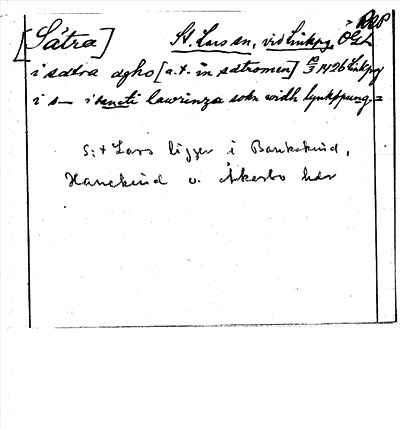 RAP
[Sätra] St. Lars sn, vid Linkpg, Ögtl
i sætra ægho [a.t. in sætromen] 19/3 1426 Linkpg
i s– i sancti lawrinza sokn widh lynkøpung =
S:t Lars ligger i Bankekind,
Hanekind o. Åkerbo här